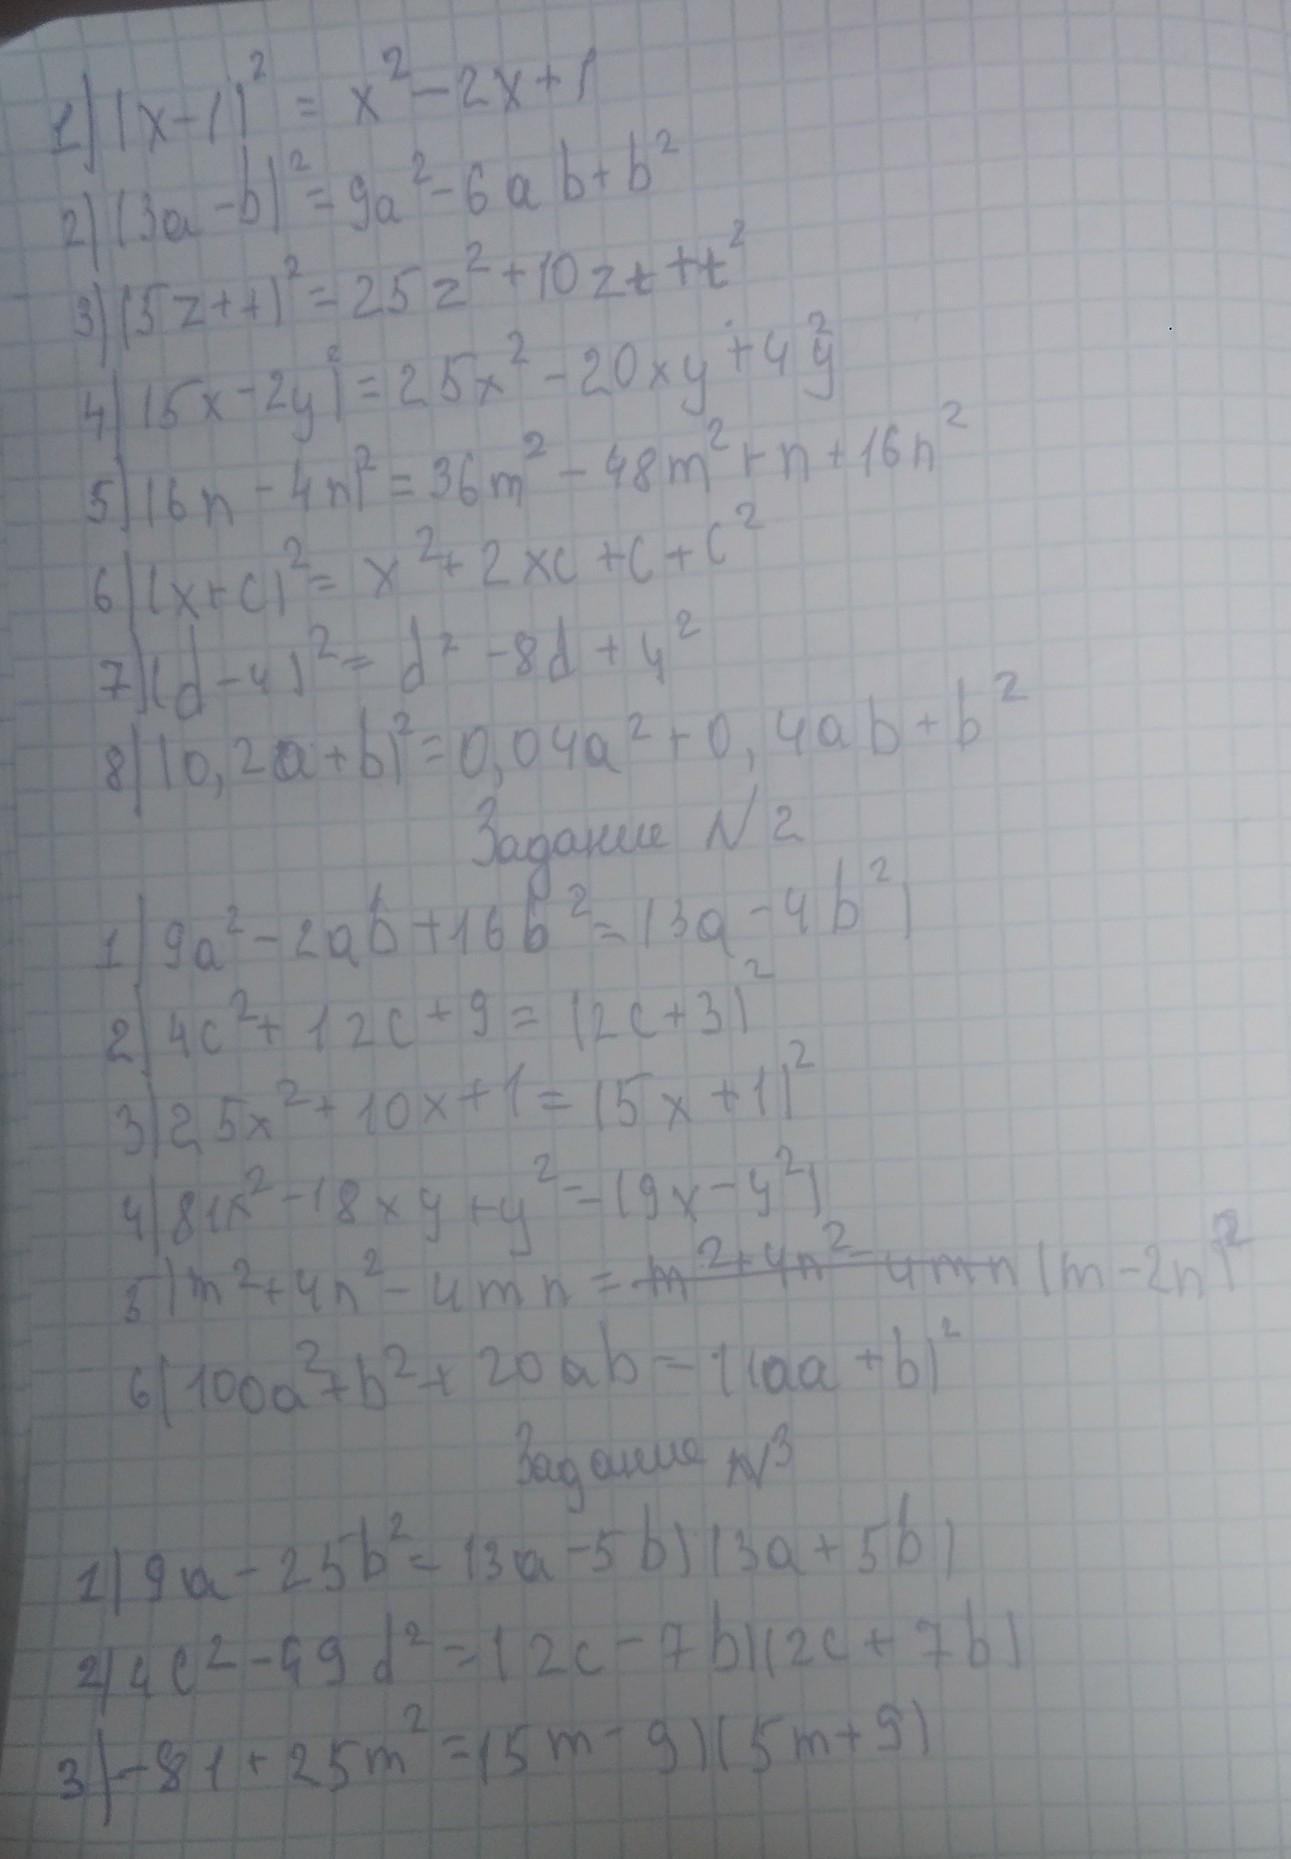 1) (x-1)² = x²-2x+1
2) (3a-b)² = 9a²-6ab+b²
3) (5z+t)² = 25z²+10zt+t²
4) (5x-2y)² = 25x²-20xy+4y²
5) (6n-4n)² = 36m²-48m²+n+16n²
6) (x+c)² = x²+2xc+c+c²
7) (d-4)² = d²-8d+4²
8) (0,2a+b)² = 0,04a²+0,4ab+b²
Задание N2
1) 9a²-2ab+16b² = (3a-4b²)
2) 4c²+12c+9 = (2c+3)²
3) 25x²+10x+1 = (5x+1)²
4) 81x²-18xy+y² = (9x-y²)
5) m²+4n²-4mn = m²+4n²-4mn (m-2n)²
6) 100a²+b²+20ab = 1(0a+b)²
Задание N3
1) 9a-25b² = (3a-5b)(3a+5b)
2) 4c²-49d² = (2c-7b)(2c+7b)
3) -81+25m² = (5m-9)(5m+9)